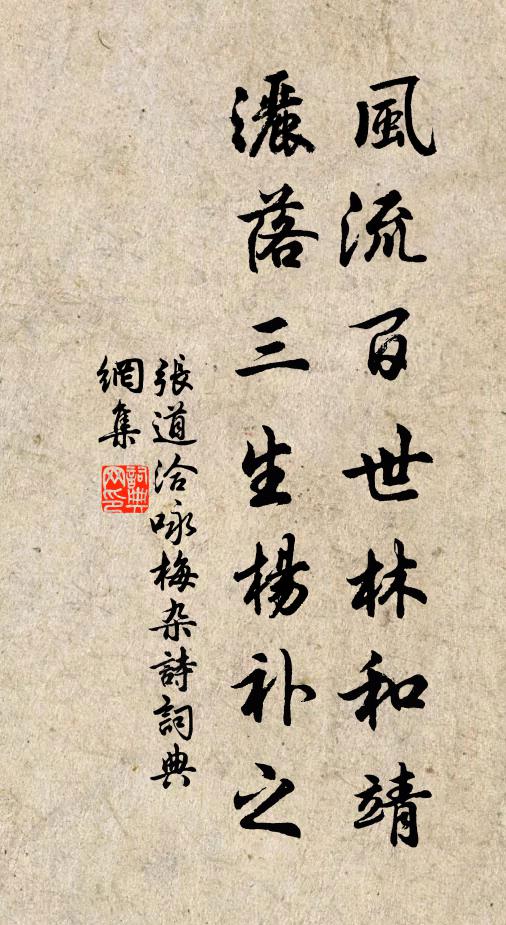 風流百世林和靖
灑落三生楊补之
張道洽咏梅杂詩詞典
網集
詞典
网印